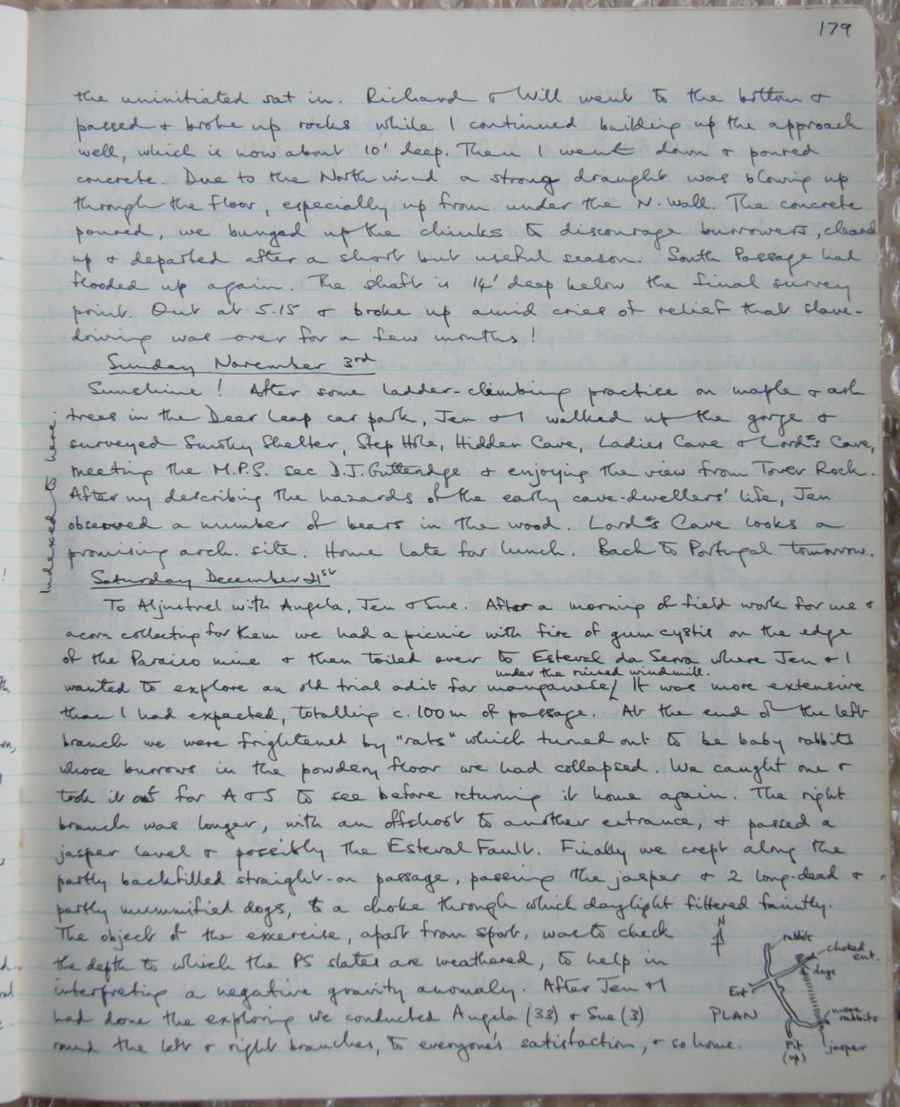 179
the uninitiated sat in. Richard & Will went to the bottom &
passed & broke up rocks while I continued building up the approach
well, which is now about 10' deep. Then I went down & poured
concrete. Due to the North wind a strong draught was blowing up
through the floor, especially up from under the N. wall. The concrete
poured, we bunged up the chinks to discourage burrowers, cleared
up & departed after a short but useful season. South Passage had
flooded up again. The shaft is 14' deep below the final survey
point. Out at 5.15 & broke up amid cries of relief that slave-
driving was over for a few months!
Sunday November 3rd
Sunshine! After some ladder-climbing practice on maple & ash
trees in the Deer Leap car park, Jen & I walked up the gorge &
surveyed Smoky Shelter, Step Hole, Hidden Cave, Ladies Cave & Lord's Cave,
meeting the M.P.S. sec D.J. Gutteridge & enjoying the view from Tower Rock.
After my describing the hazards of the early cave-dwellers' life, Jen
observed a number of bears in the wood. Lord's Cave looks a
promising arch. site. Home late for lunch. Back to Portugal tomorrow.
Indexed to here.
Saturday December 21st
To Aljustrel with Angela, Jen & Sue. After a morning of field work for me &
acorn collecting for them we had a picnic with fire of gum cystis on the edge
of the Paraiso mine & then toiled over to Esteval da Serra where Jen & I
under the ruined windmill.
wanted to explore an old trial adit for manganese. It was more extensive
than I had expected, totalling c. 100m of passage. At the end of the left
branch we were frightened by "rats" which turned out to be baby rabbits
whose burrows in the powdery floor we had collapsed. We caught one &
took it out for A & S to see before returning it home again. The right
branch was longer, with an offshoot to another entrance, & passed a
jasper level & possibly the Esteval Fault. Finally we crept along the
partly backfilled straight-on passage, passing the jasper & 2 long-dead &
partly mummified dogs, to a choke through which daylight filtered faintly.
The object of the excercise, apart from sport, was to check
the depth to which the PS slates are weathered, to help in
interpreting a negative gravity anomaly. After Jen & I
had done the exploring we conducted Angela (38) & Sue (3)
round the left & right branches, to everyone's satisfaction, & so home.
N
rabbits
choked ent.
dogs
Ent
PLAN
more rabbits
Pit (up)
jasper